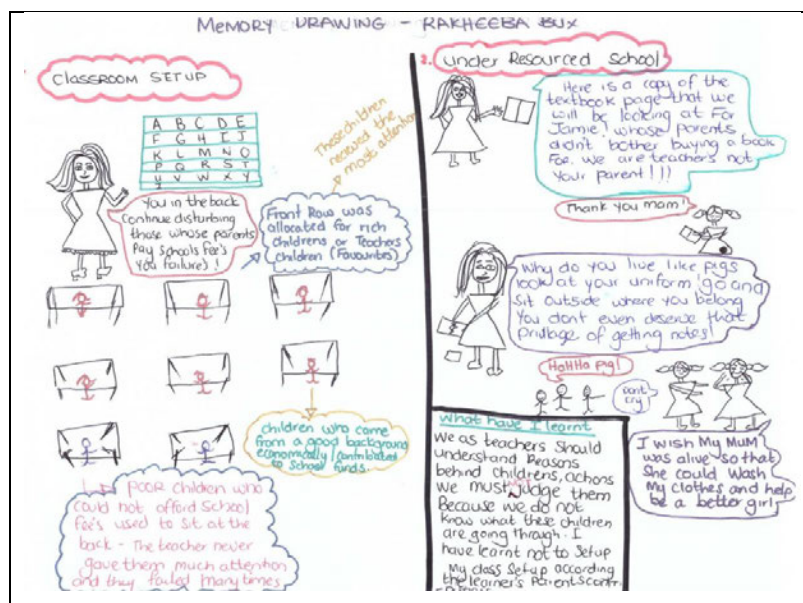 MEMORY DRAWING - RAKHEEBA BUX
CLASSROOM SETUP
A B C D E
F G H I J
K L M N O
P Q R S T
U V W X Y
Z
These children
received the
most attention
You in the back
Continue disturbing
those whose parents
Pay schools fee's
You failures!
Front Row was
allocated for rich
childrens or Teachers
children (Favourites)
children who come
from a good background
economically/contributed
to School funds.
POOR children who
could not afford School
Fee's used to sit at the
back - The teacher never
gave them much attention
and they failed many times
2. Under Resourced School
Here is a copy of the
textbook page that we
will be looking at For
Jamie, whose parents
didn't bother buying a book
For. We are teachers not
your parent!!!
Thank you mam!
Why do you live like pigs
look at your uniform go and
sit outside where you belong
You dont even deserve that
privilage of getting notes!
HaHHa pig!
Dont
cry
I wish My MUM
was alive so that
She could Wash
My clothes and help
be a better girl
What have I learnt
We as teachers Should
understand Reasons
behind childrens, actions
We must judge them
Because we do not
know what these children
are going through. I
have learnt not to Setup
My class Setup according
the learner's Parents